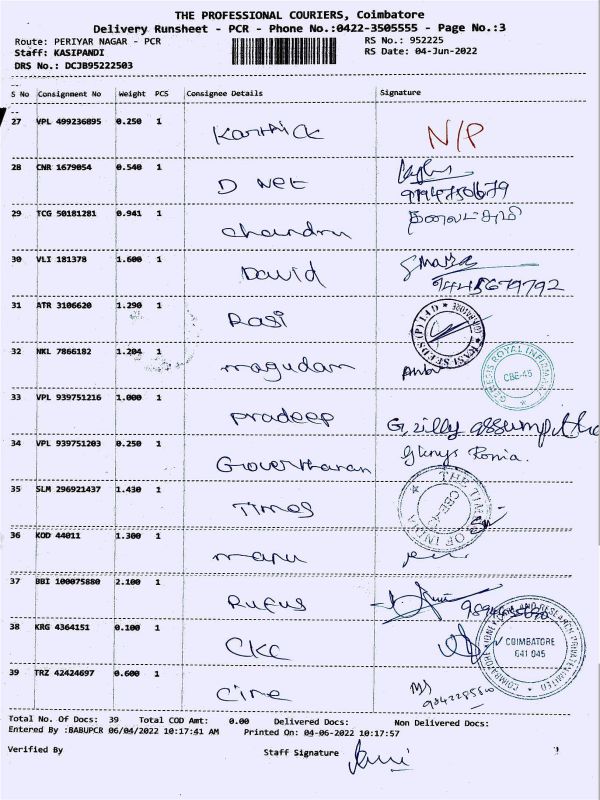 THE PROFESSIONAL COURIERS, Coimbatore
Delivery Runsheet - PCR - Phone No.:0422-3505555 - Page No.:3
Route: PERIYAR NAGAR - PCR RS No.: 952225
Staff: KASIPANDI RS Date: 04-Jun-2022
DRS No.: DCJB95222503
S No Consignment No Weight PCS Consignee Details Signature
27 VPL 499236895 0.250 1 Karthick N/P
28 CNR 1679054 0.540 1 D Net
9794750679
29 TCG 50181281 0.941 1 Chandru
30 VLI 181378 1.600 1 David
9445679792
31 ATR 3106620 1.290 1 Rasi RASI SEEDS (P) LTD
32 NKL 7866182 1.204 1 magudam Anbu GENESIS ROYAL INFIRMARY CBE-45
33 VPL 939751216 1.000 1 Pradeep G. zilly assumptha
34 VPL 939751203 0.250 1 Govertharan Glenys Ronia.
35 SLM 296921437 1.430 1 Times THE TIMES OF INDIA CBE-45
36 KOD 44011 1.300 1 manu
37 BBI 100075880 2.100 1 Rufus
38 KRG 4364151 0.100 1 CKC COIMBATORE 641 045
39 TRZ 42424697 0.600 1 Cine
Total No. Of Docs: 39 Total COD Amt: 0.00 Delivered Docs: Non Delivered Docs:
Entered By :BABUPCR 06/04/2022 10:17:41 AM Printed On: 04-06-2022 10:17:57
Verified By Staff Signature